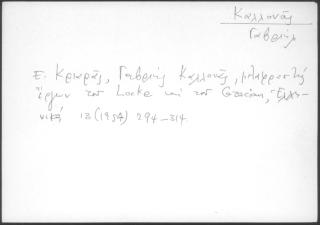 Καλλονάς
Γαβριήλ
Ε. Κριαράς, Γαβριήλ Καλλονάς, μεταφραστής
έργων του Locke και του Gracian, Ελλη-
νικά 13 (1954) 294-314